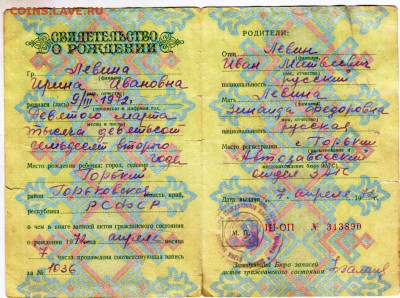 COINS.LAVE.RU
СВИДЕТЕЛЬСТВО
О РОЖДЕНИИ
Гр. Левина
(фамилия)
Ирина Ивановна
(имя, отчество)
родился (лась) 9/III-1972
Девятого марта
тысяча девятьсот
семьдесят второго
года
Место рождения ребенка: город, селение
Горький
район
Горьковская область, край,
республика РСФСР
о чем в книге записей актов гражданского состояния
о рождении 1972 года апреля месяца
7 числа произведена соответствующая запись
за № 1036
РОДИТЕЛИ:
Отец Левин
(фамилия)
Иван Матвеевич
(имя, отчество)
национальность русский
Мать Левина
(фамилия)
Зинаида Федоровна
(имя, отчество)
национальность русская
Место регистрации г. Горький
Автозаводский
отдел ЗАГС
Дата выдачи 7 апреля 1972 г.
М. П.
III-ОП № 313890
Заведующий Бюро записей
актов гражданского состояния